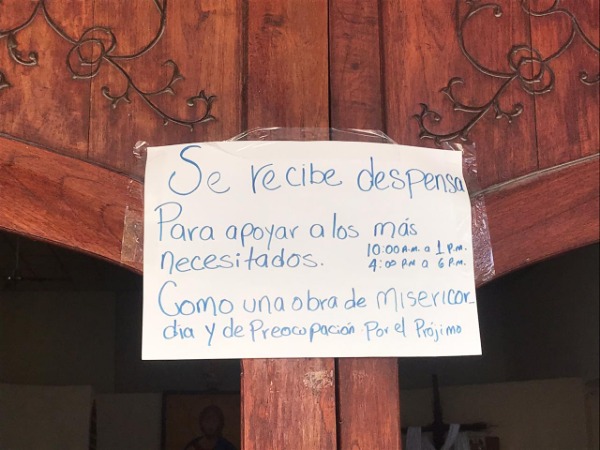 Se recibe despensa
Para apoyar a los más
necesitados.
10:00 A.M. a 1 P.M.
4:00 P.M a 6 P.M.
Como una obra de Misericor_
dia y de Preocupación Por el Prójimo